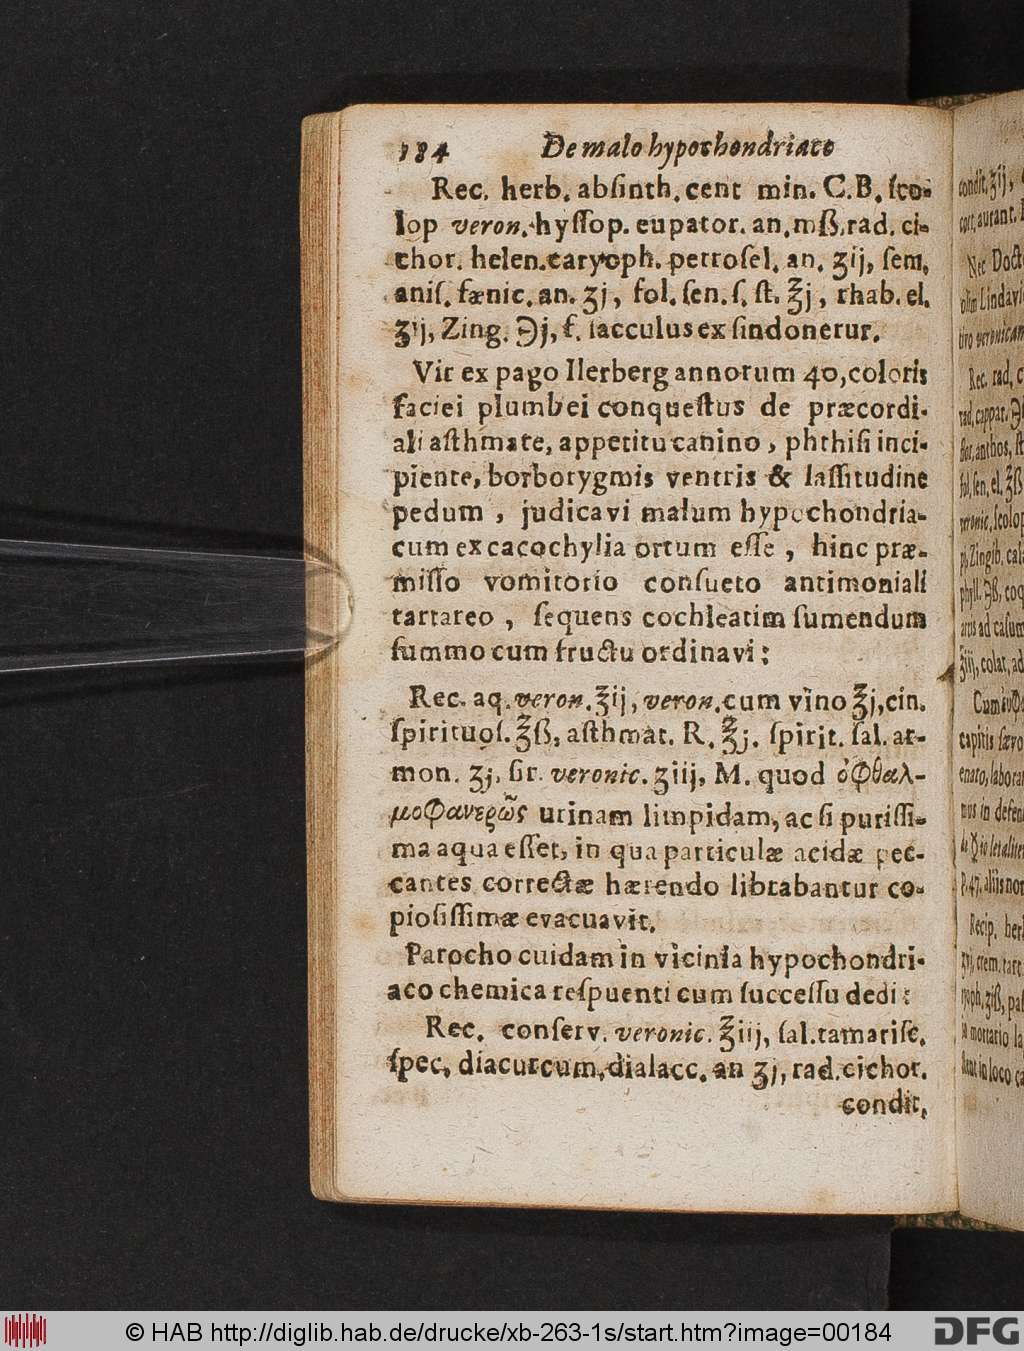 134 De malo hypochondriaco
Rec. herb. absinth. cent min. C.B. sco-
lop veron. hyssop. eupator. an. mß. rad. ci-
chor. helen. caryoph. petrosel. an. ʒij, sem.
anis. fænic. an. ʒj, fol. sen. s. st. ℥j, rhab. el.
ʒij, Zing. ℈j, f. sacculus ex sindonerur.
Vir ex pago Ilerberg annorum 40, coloris
faciei plumbei conquestus de præcordi-
ali asthmate, appetitu canino, phthisi inci-
piente, borborygmis ventris & lassitudine
pedum, judicavi malum hypochondria-
cum ex cacochylia ortum esse, hinc præ-
misso vomitorio consueto antimoniali
tartareo, sequens cochleatim sumendum
summo cum fructu ordinavi:
Rec. aq. veron. ℥ij, veron. cum vino ℥j, cin.
spirituos. ℥ß, asthmat. R. ℥j. spirit. sal. ar-
mon. ʒj, sir. veronic. ʒiij, M. quod ὀφθαλ-
μοφανερῶς urinam limpidam, ac si purissi-
ma aqua esset, in qua particulæ acidæ pec-
cantes correctæ hærendo librabantur co-
piosissimæ evacuavit.
Parocho cuidam in vicinia hypochondri-
aco chemica respuenti cum successu dedi:
Rec. conserv. veronic. ℥iij, sal. tamarisc.
spec. diacurcum. dialacc. an ʒj, rad. cichor.
condit.
condit. ʒij,
cort. aurant.
Nec Doct
olim Lindavi
tiro veronicam
Rec. rad. c
rad. cappar. ℈
flor. anthos, st
fol. sen. el. ℥ß
veronic. scolop
p. Zingib. cal
phyll. ℈ß, coq
artis ad casum
℥iij, colat. ad
capitis sævo
enato, labora
mus in defen
p. 47. aliis non
Recip. her
© HAB http://diglib.hab.de/drucke/xb-263-1s/start.htm?image=00184
DFG